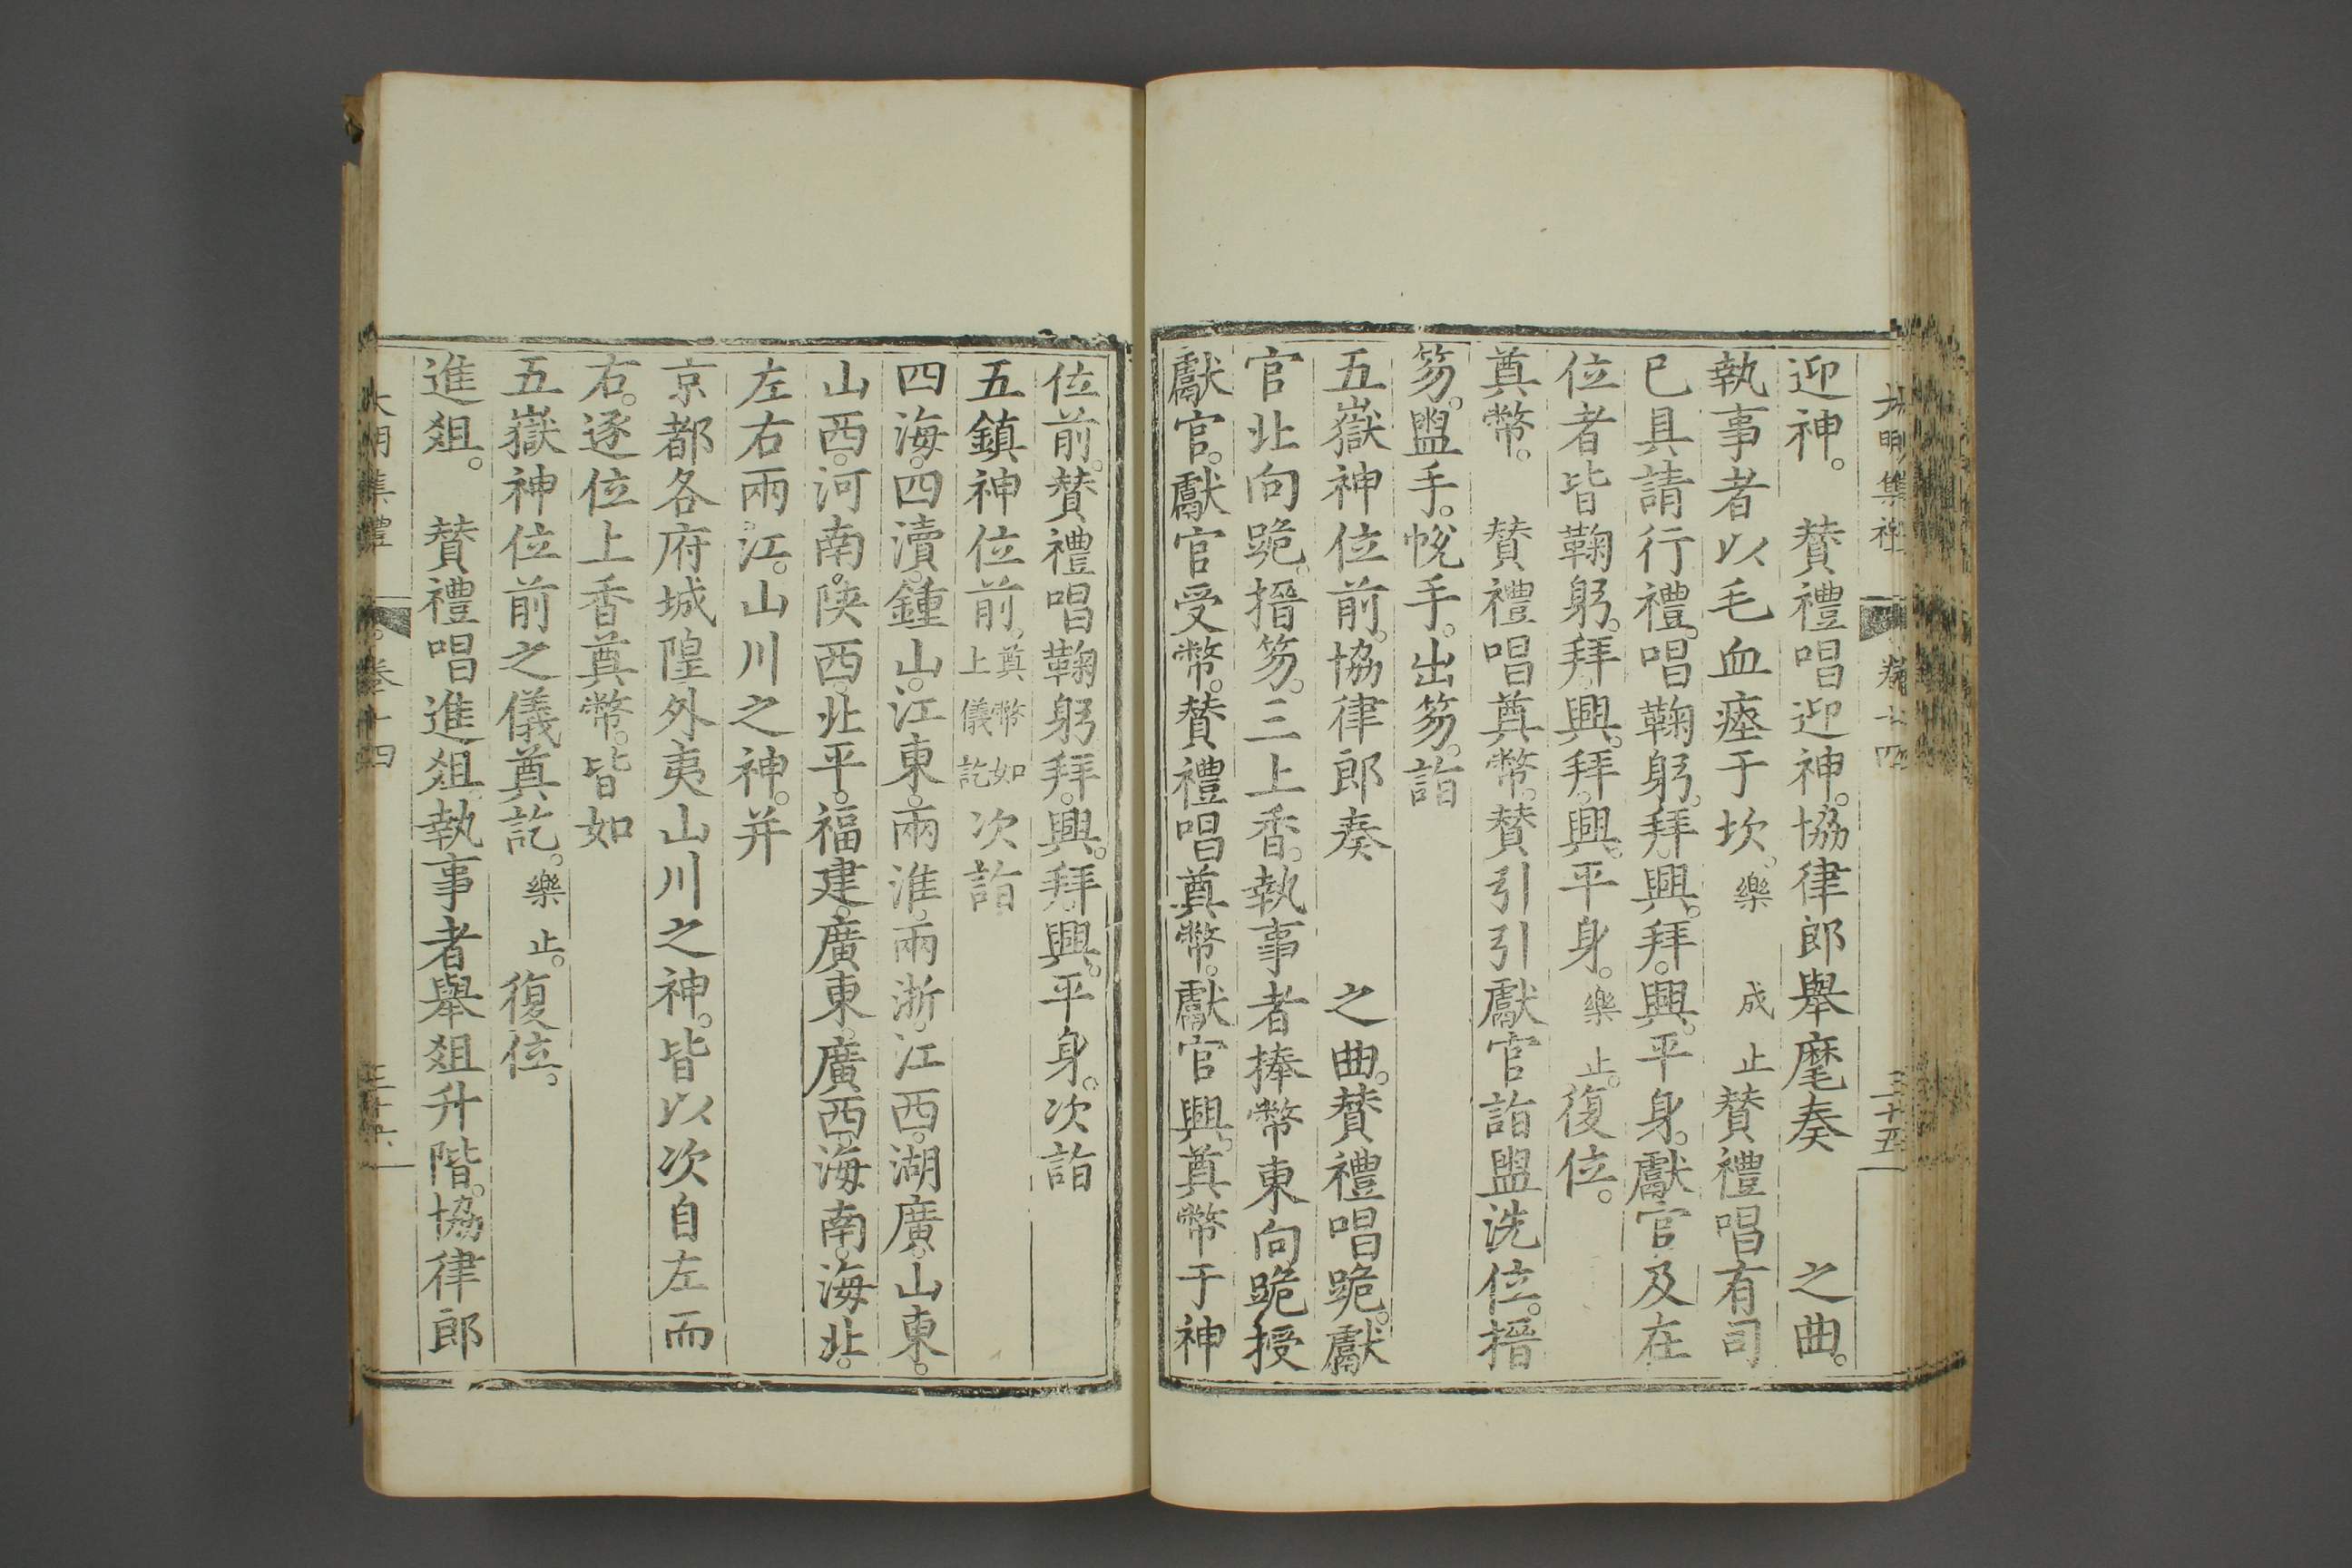 迎神。　賛禮唱迎神。協律郎舉麾奏　　之曲。
執事者以毛血瘞于坎。樂　成　止賛禮唱有司
已具請行禮。唱鞠躬。拜。興。拜。興。平身。獻官及在
位者皆鞠躬。拜。興。拜。興。平身。樂　止。復位。
奠幣。　賛禮唱奠幣。賛引引獻官詣盥洗位。搢
笏。盥手。帨手。出笏。詣
五嶽神位前。協律郎奏　　之曲。賛禮唱跪。獻
官北向跪。搢笏。三上香。執事者捧幣東向跪授
獻官。獻官受幣。賛禮唱奠幣。獻官興。奠幣于神
大明集禮　卷十四　三十五
位前。賛禮唱鞠躬拜。興。拜。興。平身。次詣
五鎮神位前。奠幣如上儀訖次詣
四海。四瀆。鍾山。江東。兩淮。兩浙。江西。湖廣。山東。
山西。河南。陝西。北平。福建。廣東。廣西。海南。海北。
左右兩江。山川之神。并
京都各府城隍外夷山川之神。皆以次自左而
右。逐位上香奠幣。皆如
五嶽神位前之儀奠訖。樂　止。復位。
進爼。　賛禮唱進爼執事者舉爼升階。協律郎
大明集禮　卷十四